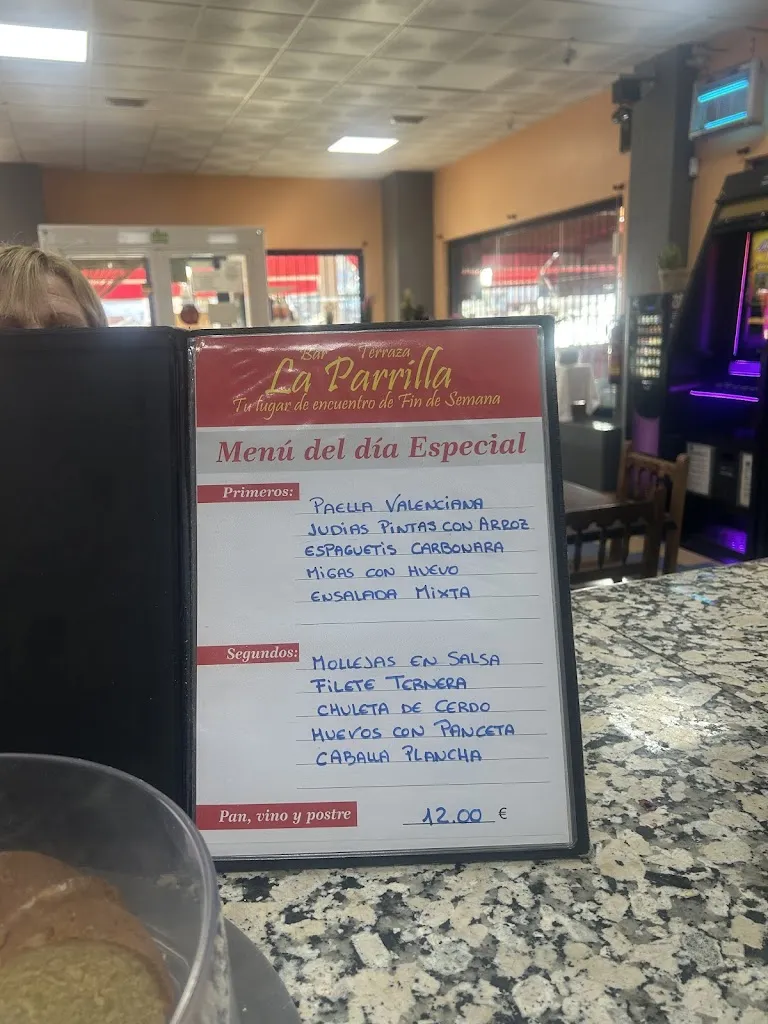 Bar Terraza
La Parrilla
Tu lugar de encuentro de Fin de Semana
Menú del día Especial
Primeros:
PAELLA VALENCIANA
JUDIAS PINTAS CON ARROZ
ESPAGUETIS CARBONARA
MIGAS CON HUEVO
ENSALADA MIXTA
Segundos:
MOLLEJAS EN SALSA
FILETE TERNERA
CHULETA DE CERDO
HUEVOS CON PANCETA
CABALLA PLANCHA
Pan, vino y postre 12.00 €